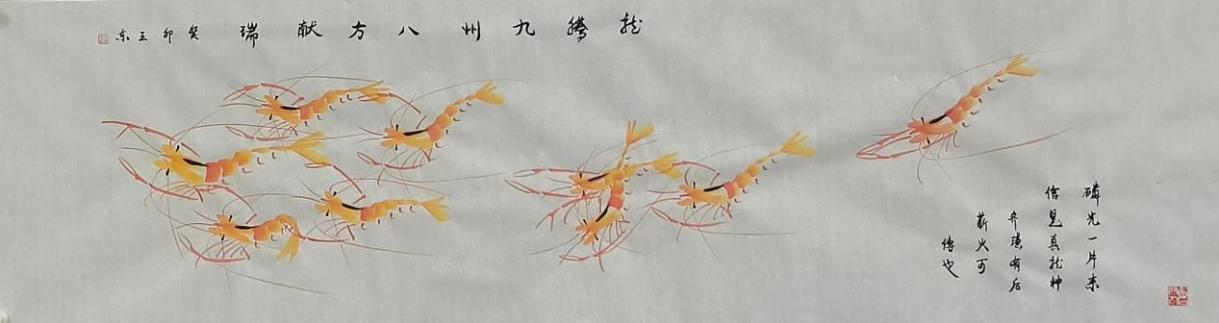 龙腾九州八方献瑞 癸卯王东
磷光一片来
信是真龙神
齐璜有后
薪火可
传也